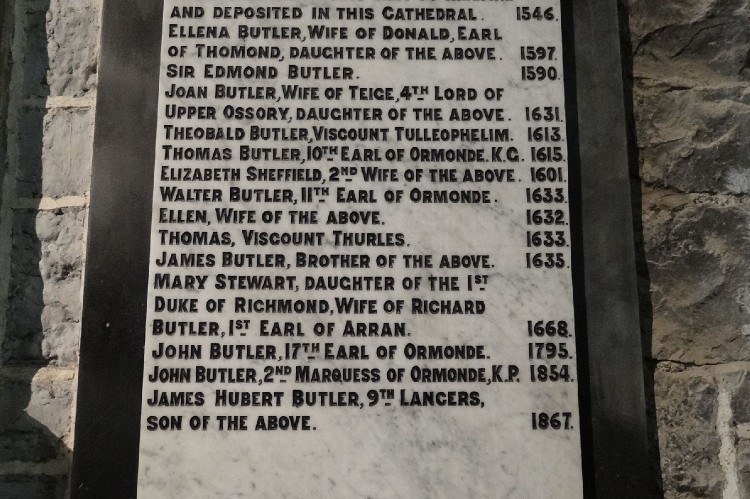 and deposited in this Cathedral. 1546.
Ellena Butler, Wife of Donald, Earl
of Thomond, daughter of the above. 1597.
Sir Edmond Butler. 1590.
Joan Butler, Wife of Teige, 4th Lord of
Upper Ossory, daughter of the above. 1631.
Theobald Butler, Viscount Tulleophelim. 1613.
Thomas Butler, 10th Earl of Ormonde. K.G. 1615.
Elizabeth Sheffield, 2nd Wife of the above. 1601.
Walter Butler, 11th Earl of Ormonde. 1633.
Ellen, Wife of the above. 1632.
Thomas, Viscount Thurles. 1633.
James Butler, Brother of the above. 1635.
Mary Stewart, daughter of the 1st
Duke of Richmond, Wife of Richard
Butler, 1st Earl of Arran. 1668.
John Butler, 17th Earl of Ormonde. 1795.
John Butler, 2nd Marquess of Ormonde, K.P. 1854.
James Hubert Butler, 9th Lancers,
son of the above. 1867.